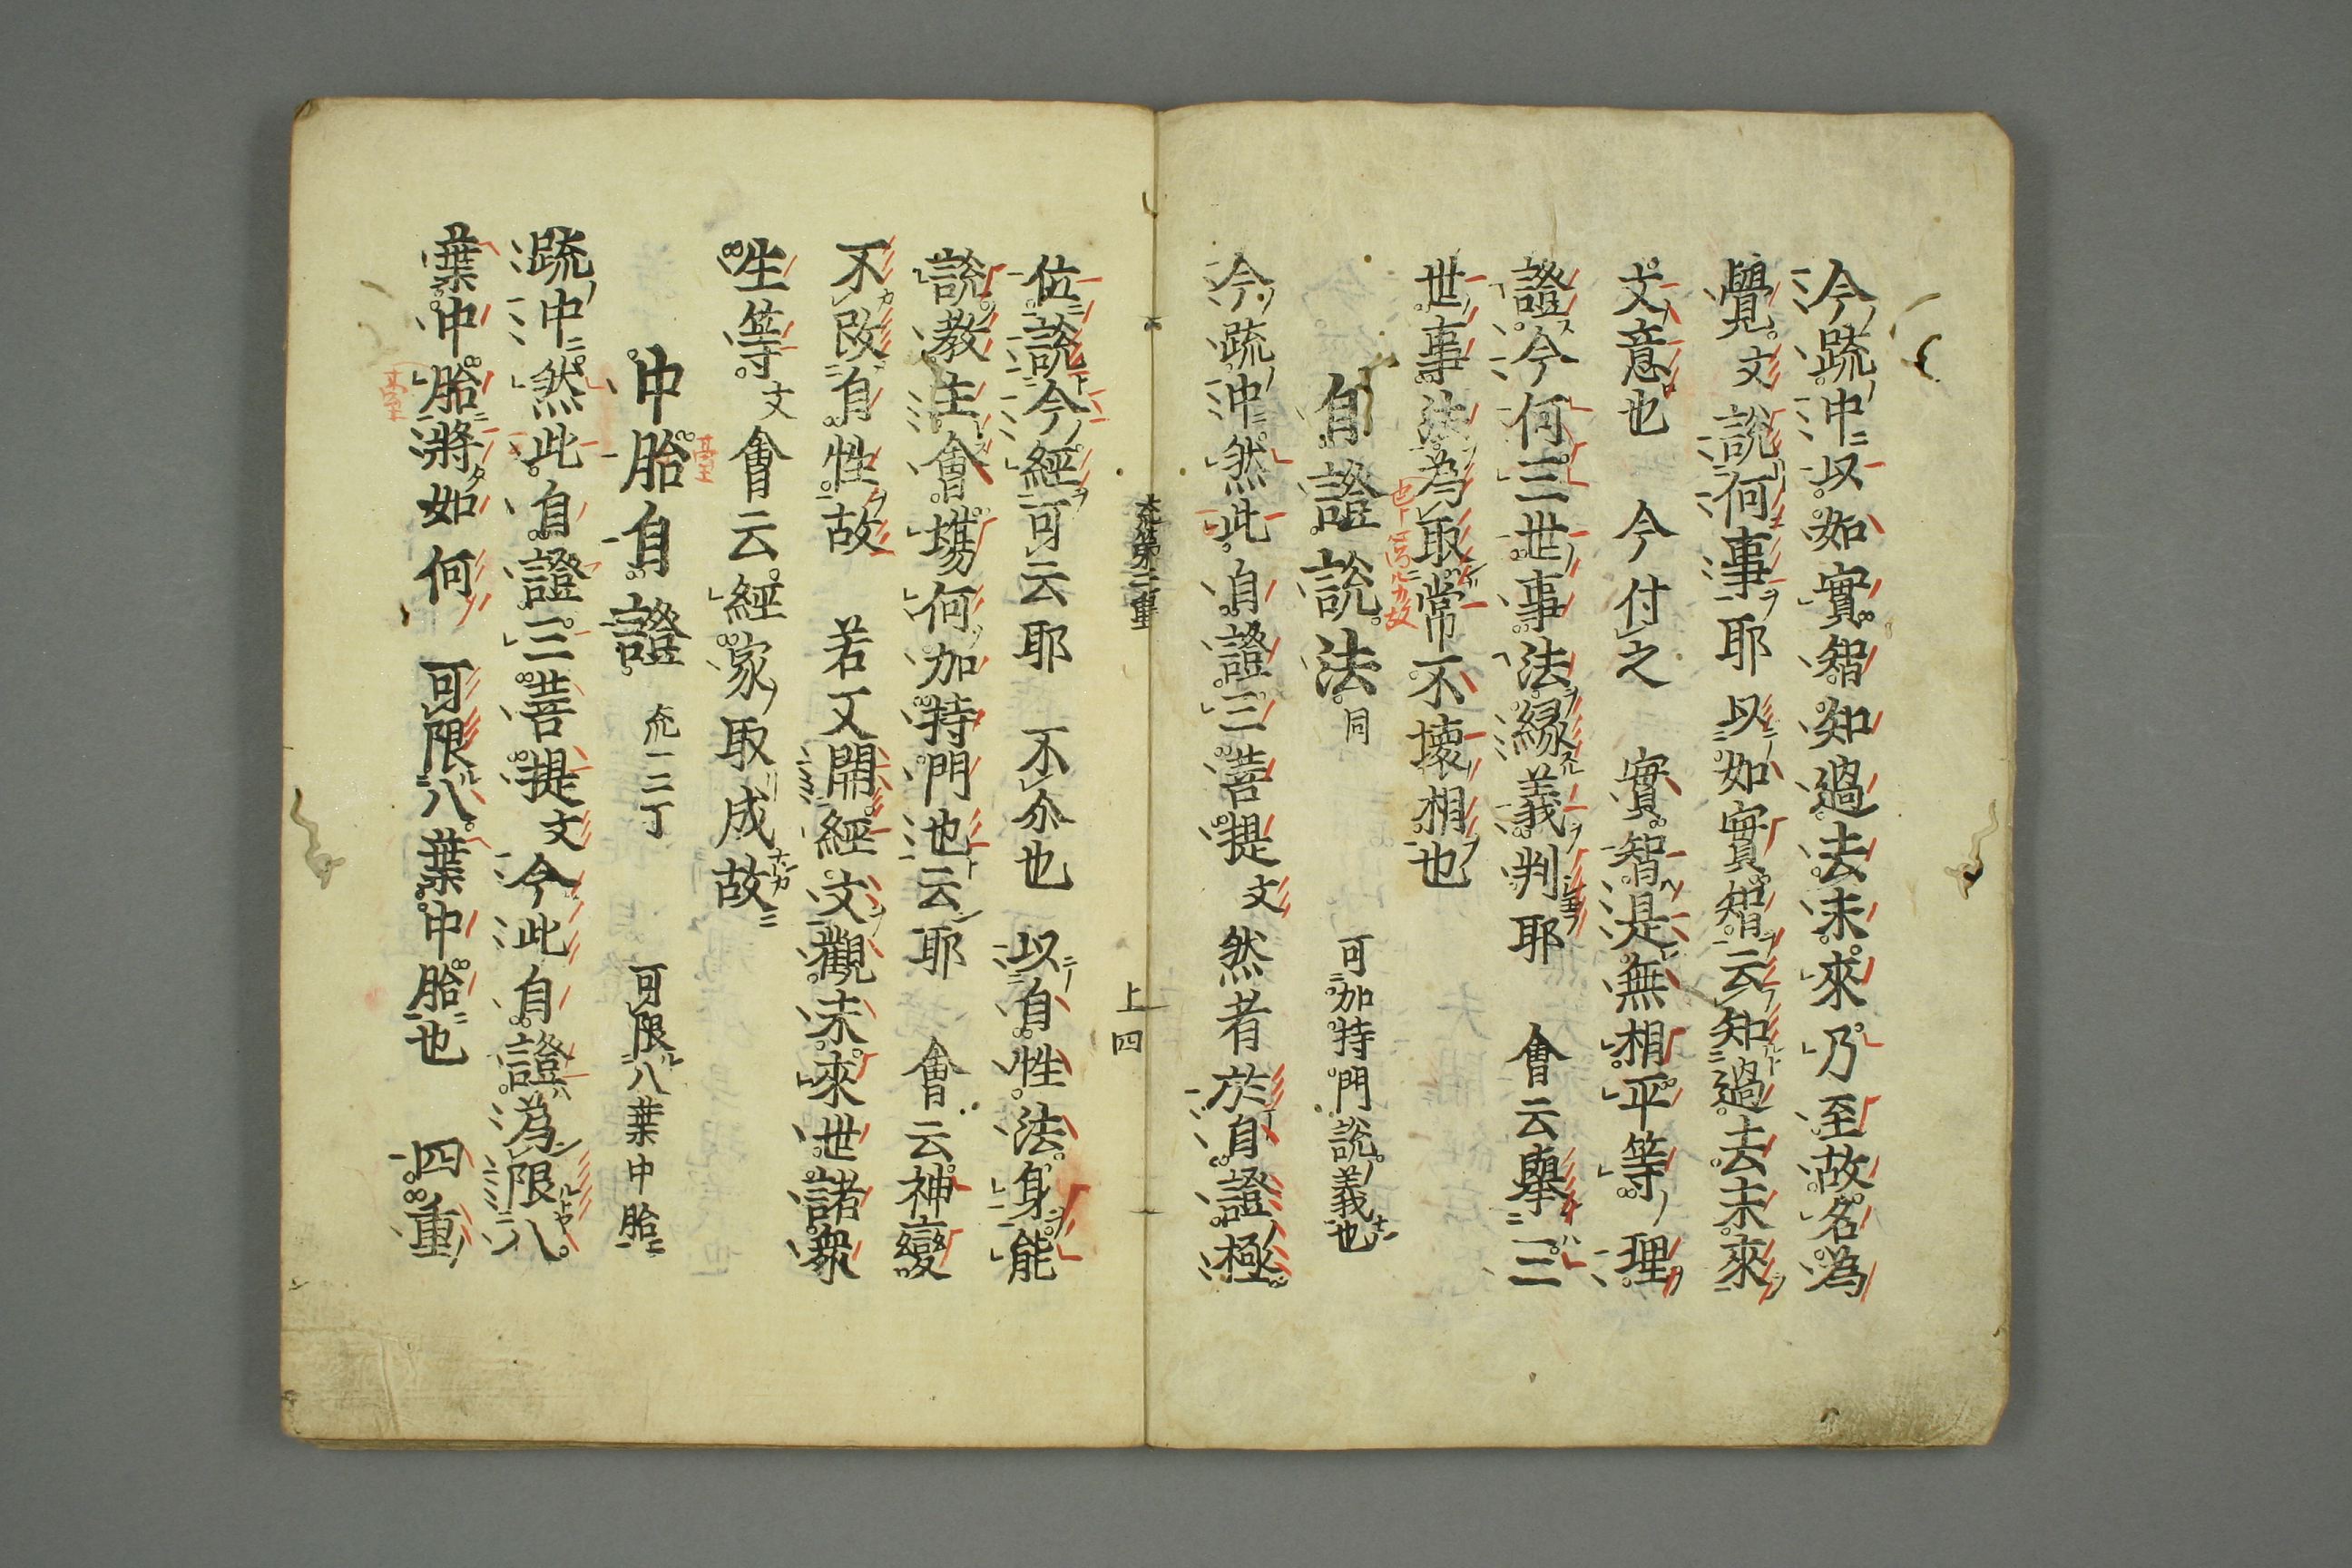 今疏中以如實智知過去未來乃至故名為
覺文 說何事耶 以如實智云知過去未來
文意也 今付之 實智是無相平等理
證今何三世事法緣義判耶 會云舉三
世事法為取常不壞相也
自證說法 同 可加持門說義也
今疏中然此自證三菩提文 然者於自證極
大疏第三重 上 四
位說今經可云耶 不尒也 以自性法身能
說教主會場何加持門也云耶 會云神變
不改自性故 若又開經文觀未來世諸衆
生等文 會云經家取成故
中胎自證 疏一二丁 可限八葉中胎
疏中然此自證三菩提文 今此自證為限八
葉中胎將如何 可限八葉中胎也 四重